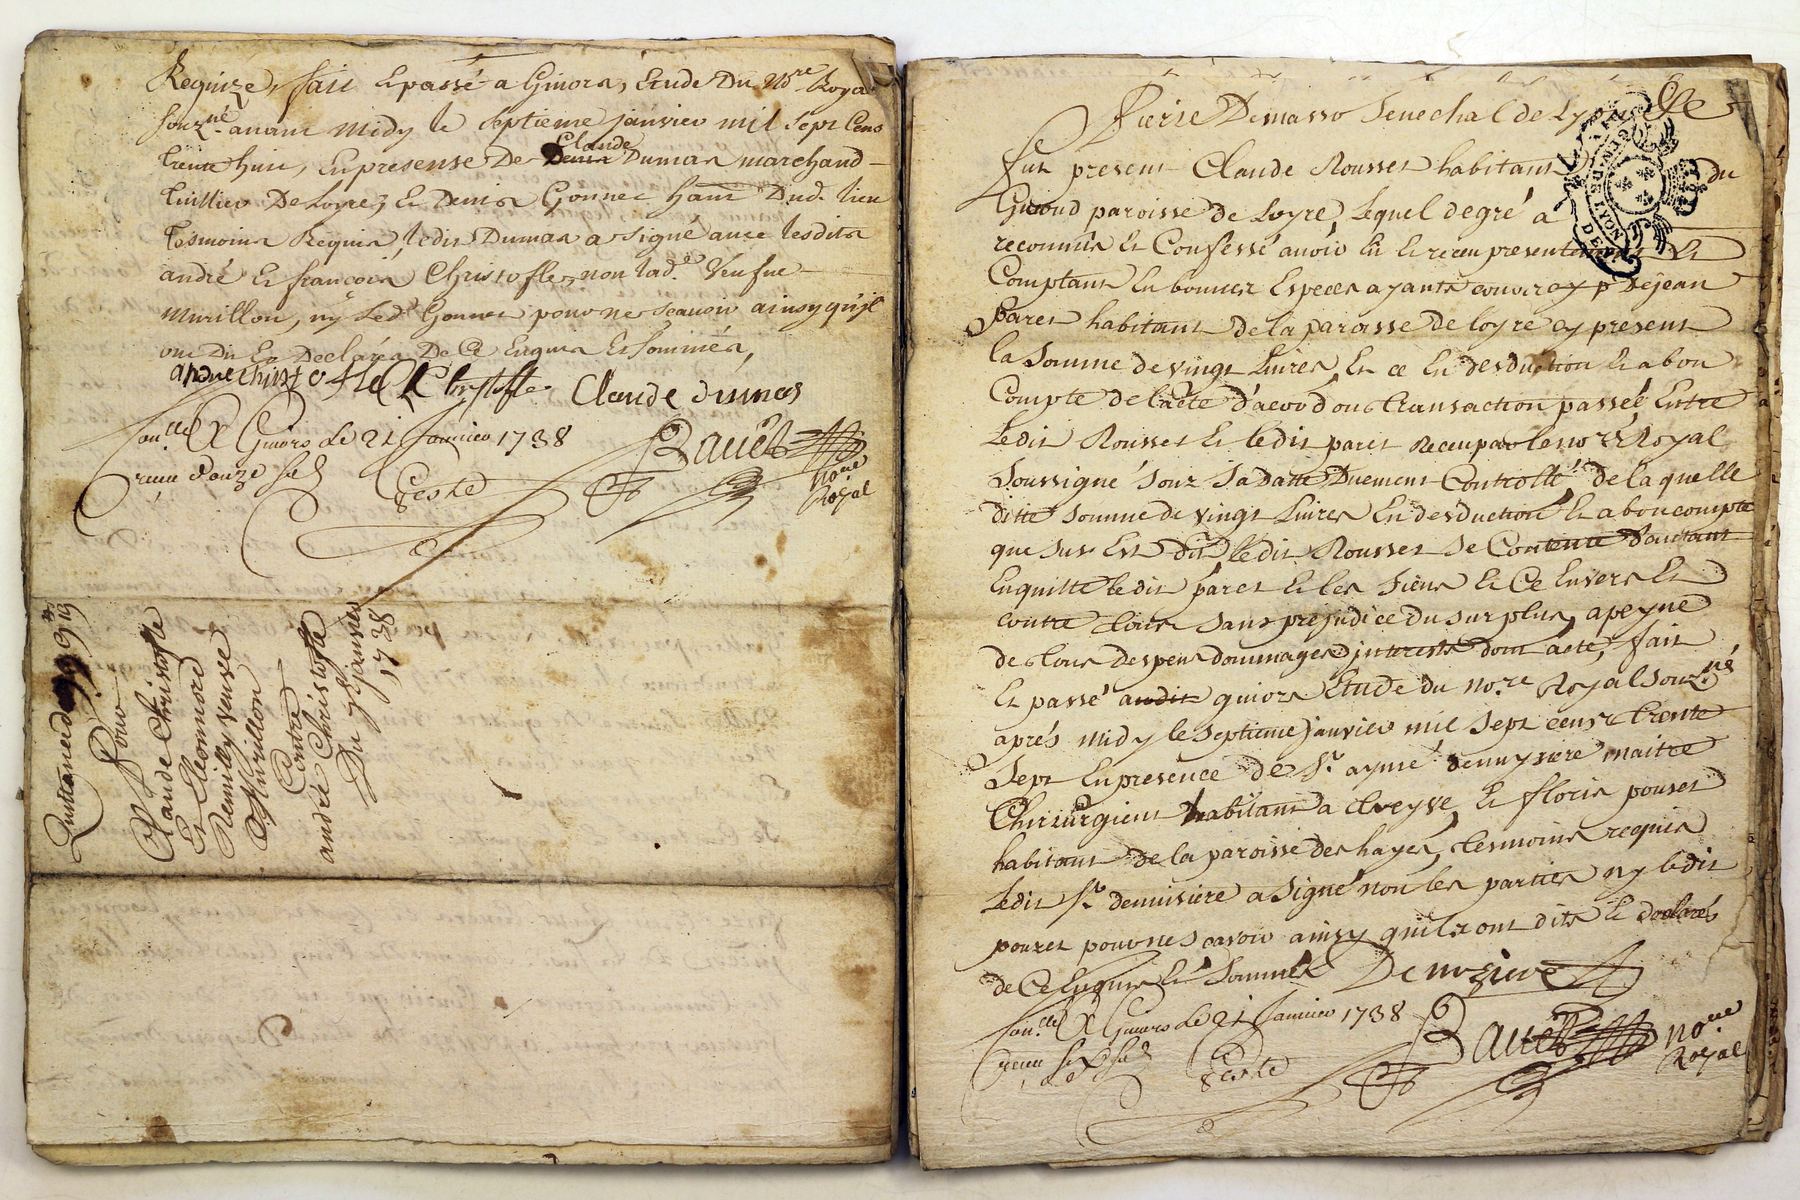 Requize, fait Et passé a Givors, Etude Du No.re Royal
souz.né avant Midy le septieme janvier mil sept Cens
trente huit, En presense De Claude Dumas marchand
tuillier De Loyre, Et Denis Gonnet hant Dud. lieu
tesmoins Requis, ledit Dumas a signé avec lesdits
andré Et françois Christofle, non lad.e Veufve
Murillon, ny Led. Gonnet pour ne scavoir ainsy qu'il
ont Dit Et Declarés De Ce Enquis Et sommés,
andre christofle Christofle Claude dumas
Con.llé A Givors Le 21 Janvier 1738
receu douze sols
Geste
Bavet
no.re
Royal
Quittance de
Pour
Claude Christofle
Et Eleonnord
Demilly veuve
Murillon
Contre
andré Christofle
Du 7.e janvier
1738
Pierre Demasso senechal de Lyon
fut present Claude Rousset habitant du
Giraud paroisse de Loyre, Lequel de gré a
reconnus Et Confessé avoir Eu Et receu presentement Et
Comptant En bonnes Especes ayants cours Dejean
paret habitant de la paroisse de loyre cy present
la somme de vingt Livres, Et ce En desduction Et a bon
Compte de l'acte d'acord ou transaction passée Entre
Ledit Rousset Et ledit paret Receu par le no.re Royal
soussigné souz sa datte Duement Controllé de laquelle
ditte somme de vingt Livres En desduction Et a bon compte
que sus Est dit ledit Rousset se Contente d'autant
Enquitte ledit paret Et les siens Et Ce Envers Et
contre tous sans prejudice du surplus, a peyne
de tous despens dommages interests dont acte, fait
Et passé audit givors Etude du no.re Royal souz.né
aprés midy le septieme janvier mil sept cens trente
sept En presence de s.r aymé demuysiere maitre
Chirurgient habitant a Eveyve, Et floris pouret
habitant de la paroisse des hayes, tesmoins requis
Ledit s.r demuisiere a signé non les parties ny ledit
pouret pour ne scavoir ainsy qu'ils ont dits Et declarés
de Ce Enquis Et sommés Demuziere
Con.llé A Givors Le 21 Janvier 1738
receu six sols
Geste
Bavet
no.re
Royal